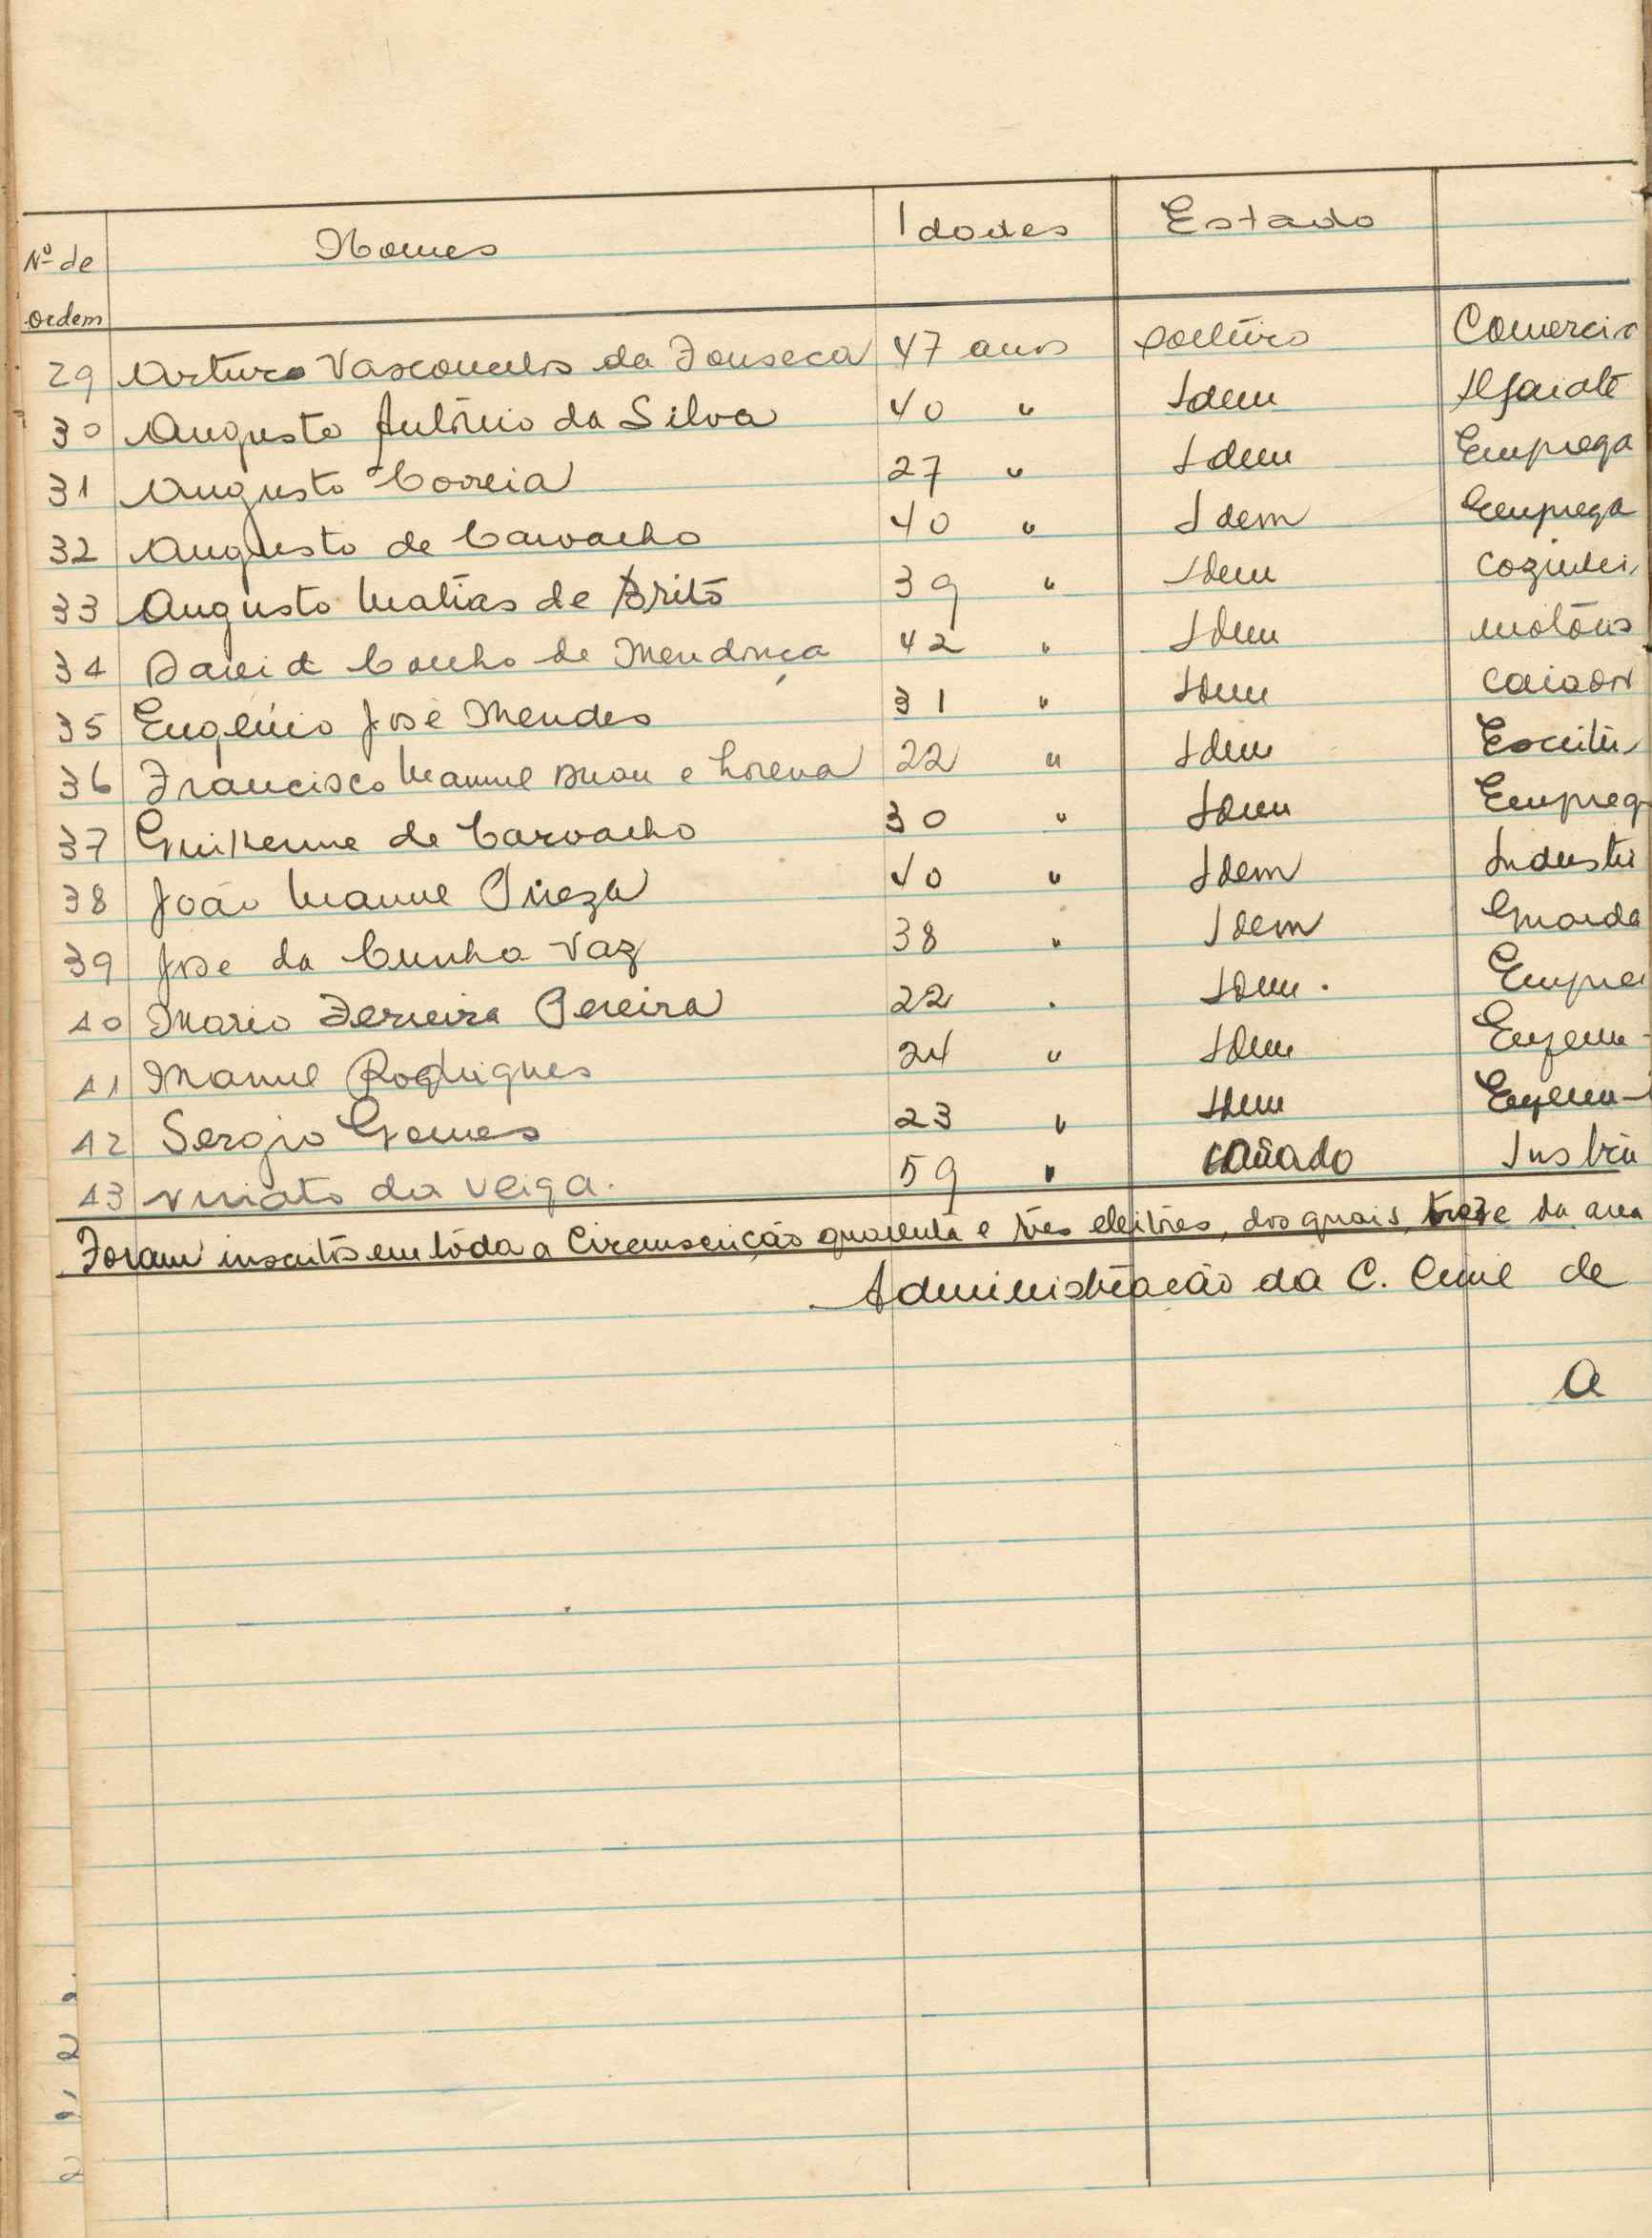 Nº de Nomes Idades Estado
ordem
29 Arturo Vasconcelos da Fonseca 47 anos solteiro Comercia
30 Augusto António da Silva 40 " Idem Alfaiate
31 Augusto Correia 27 " Idem Emprega
32 Augusto de Carvalho 40 " Idem Emprega
33 Augusto Matias de Brito 39 " Idem Cozinhei
34 David Coelho de Mendonça 42 " Idem motoris
35 Eugénio José Mendes 31 " Idem caiador
36 Francisco Manuel e Lorena 22 " Idem Escritu
37 Guilherme de Carvalho 30 " Idem Empreg
38 João Manuel 40 " Idem Industri
39 José da Cunha Vaz 38 " Idem Guarda
40 Mario Ferreira Pereira 22 " Idem. Empre
41 Manuel Rodrigues 24 " Idem Enferm
42 Sergio Gomes 23 " Idem Enferm
43 Viriato da Veiga. 59 " casado
Foram inscritos em tôda a Circunscrição quarenta e três eleitôres, dos quais, treze da area
Administração da C. Civil de
A